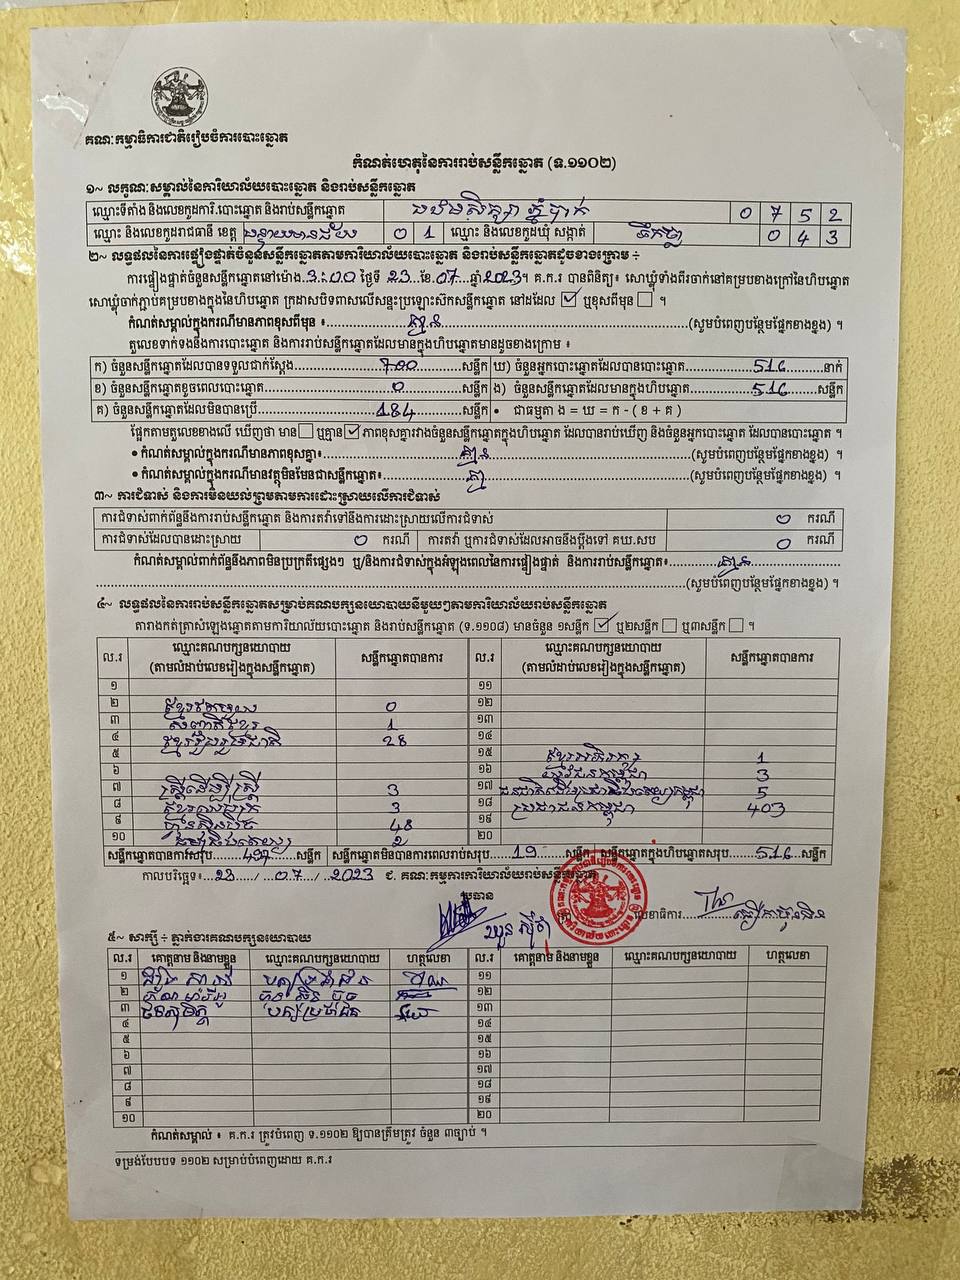 គណៈកម្មាធិការជាតិរៀបចំការបោះឆ្នោត
កំណត់ហេតុនៃការរាប់សន្លឹកឆ្នោត (ទ.១១០២)
១~ លក្ខណៈសម្គាល់នៃការិយាល័យបោះឆ្នោត និងរាប់សន្លឹកឆ្នោត
ឈ្មោះទីតាំង និងលេខកូដការិ.បោះឆ្នោត និងរាប់សន្លឹកឆ្នោត បឋមសិក្សា ភ្នំបាក់ 0 7 5 2
ឈ្មោះ និងលេខកូដរាជធានី ខេត្ត បន្ទាយមានជ័យ 0 1 ឈ្មោះ និងលេខកូដឃុំ សង្កាត់ ទឹកថ្លា 0 4 3
២~ លទ្ធផលនៃការផ្ទៀងផ្ទាត់ចំនួនសន្លឹកឆ្នោតតាមការិយាល័យបោះឆ្នោត និងរាប់សន្លឹកឆ្នោតដូចខាងក្រោម ÷
ការផ្ទៀងផ្ទាត់ចំនួនសន្លឹកឆ្នោតនៅម៉ោង.3:00 ថ្ងៃទី 23 ខែ.07 ឆ្នាំ 2023។ គ.ក.រ បានពិនិត្យ៖ សោឃ្លុំទាំងពីរចាក់នៅគម្របខាងក្រៅនៃហិបឆ្នោត
សោឃ្លុំចាក់ភ្ជាប់គម្របខាងក្នុងនៃហិបឆ្នោត ក្រដាសបិទពាសលើសន្ទះប្រឡោះសិកសន្លឹកឆ្នោត នៅដដែល ☑ ឬខុសពីមុន ☐ ។
កំណត់សម្គាល់ក្នុងករណីមានភាពខុសពីមុន ៖ គ្មាន (សូមបំពេញបន្ថែមផ្នែកខាងខ្នង) ។
តួលេខទាក់ទងនឹងការបោះឆ្នោត និងការរាប់សន្លឹកឆ្នោតដែលមានក្នុងហិបឆ្នោតមានដូចខាងក្រោម ៖
ក) ចំនួនសន្លឹកឆ្នោតដែលបានទទួលជាក់ស្តែង 700 សន្លឹក ឃ) ចំនួនអ្នកបោះឆ្នោតដែលបានបោះឆ្នោត 516 នាក់
ខ) ចំនួនសន្លឹកឆ្នោតខូចពេលបោះឆ្នោត 0 សន្លឹក ង) ចំនួនសន្លឹកឆ្នោតដែលមានក្នុងហិបឆ្នោត 516 សន្លឹក
គ) ចំនួនសន្លឹកឆ្នោតដែលមិនបានប្រើ 184 សន្លឹក • ជាធម្មតា ង = ឃ = ក - ( ខ + គ )
ផ្អែកតាមតួលេខខាងលើ ឃើញថា មាន ☐ ឬគ្មាន ☑ ភាពខុសគ្នារវាងចំនួនសន្លឹកឆ្នោតក្នុងហិបឆ្នោត ដែលបានរាប់ឃើញ និងចំនួនអ្នកបោះឆ្នោត ដែលបានបោះឆ្នោត ។
• កំណត់សម្គាល់ក្នុងករណីមានភាពខុសគ្នា៖ គ្មាន (សូមបំពេញបន្ថែមផ្នែកខាងខ្នង) ។
• កំណត់សម្គាល់ក្នុងករណីមានវត្ថុមិនមែនជាសន្លឹកឆ្នោត៖ (សូមបំពេញបន្ថែមផ្នែកខាងខ្នង) ។
៣~ ការជំទាស់ និងការមិនយល់ព្រមតាមការដោះស្រាយលើការជំទាស់
ការជំទាស់ពាក់ព័ន្ធនឹងការរាប់សន្លឹកឆ្នោត និងការតវ៉ាទៅនឹងការដោះស្រាយលើការជំទាស់ 0 ករណី
ការជំទាស់ដែលបានដោះស្រាយ 0 ករណី ការតវ៉ា ឬការជំទាស់ដែលអាចនឹងប្តឹងទៅ គឃ.សប 0 ករណី
កំណត់សម្គាល់ពាក់ព័ន្ធនឹងភាពមិនប្រក្រតីផ្សេងៗ ឬ/និងការជំទាស់ក្នុងអំឡុងពេលនៃការផ្ទៀងផ្ទាត់ និងការរាប់សន្លឹកឆ្នោត៖ គ្មាន
(សូមបំពេញបន្ថែមផ្នែកខាងខ្នង) ។
៤~ លទ្ធផលនៃការរាប់សន្លឹកឆ្នោតសម្រាប់គណបក្សនយោបាយនីមួយៗតាមការិយាល័យរាប់សន្លឹកឆ្នោត
តារាងកត់ត្រាសំឡេងឆ្នោតតាមការិយាល័យបោះឆ្នោត និងរាប់សន្លឹកឆ្នោត (ទ.១១០៨) មានចំនួន ១សន្លឹក ☑ ឬ២សន្លឹក ☐ ឬ៣សន្លឹក ☐ ។
ល.រ ឈ្មោះគណបក្សនយោបាយ (តាមលំដាប់លេខរៀងក្នុងសន្លឹកឆ្នោត) សន្លឹកឆ្នោតបានការ ល.រ ឈ្មោះគណបក្សនយោបាយ (តាមលំដាប់លេខរៀងក្នុងសន្លឹកឆ្នោត) សន្លឹកឆ្នោតបានការ
១ ១១
២ ខ្មែរតែមួយ 0 ១២
៣ សញ្ជាតិខ្មែរ 1 ១៣
៤ ខ្មែររួបរួមជាតិ 28 ១៤
៥ ១៥ ខ្មែរអភិរក្ស 1
៦ ១៦ យុវជនកម្ពុជា 3
៧ ស្ត្រីដើម្បីស្ត្រី 3 ១៧ ជនជាតិដើមប្រជាធិបតេយ្យកម្ពុជា 5
៨ 3 ១៨ ប្រជាជនកម្ពុជា 403
៩ ហ៊្វុនស៊ិនប៉ិច 48 ១៩
១០ 2 ២០
សន្លឹកឆ្នោតបានការសរុប 497 សន្លឹក សន្លឹកឆ្នោតមិនបានការពេលរាប់សរុប 19 សន្លឹក សន្លឹកឆ្នោតក្នុងហិបឆ្នោតសរុប 516 សន្លឹក
កាលបរិច្ឆេទ៖ 23 / 07 / 2023 ជ. គណៈកម្មការការិយាល័យរាប់សន្លឹកឆ្នោត
ប្រធាន
លេខាធិការ
៥~ សាក្សី ÷ ភ្នាក់ងារគណបក្សនយោបាយ
ល.រ គោត្តនាម និងនាមខ្លួន ឈ្មោះគណបក្សនយោបាយ ហត្ថលេខា ល.រ គោត្តនាម និងនាមខ្លួន ឈ្មោះគណបក្សនយោបាយ ហត្ថលេខា
១ ១១
២ ហ៊្វុន ស៊ិន ប៉ិច ១២
៣ បក្សប្រជាជន ១៣
៤ ១៤
៥ ១៥
៦ ១៦
៧ ១៧
៨ ១៨
៩ ១៩
១០ ២០
កំណត់សម្គាល់ ៖ គ.ក.រ ត្រូវបំពេញ ទ.១១០២ ឱ្យបានត្រឹមត្រូវ ចំនួន ៣ច្បាប់ ។
ទម្រង់បែបបទ ១១០២ សម្រាប់បំពេញដោយ គ.ក.រ